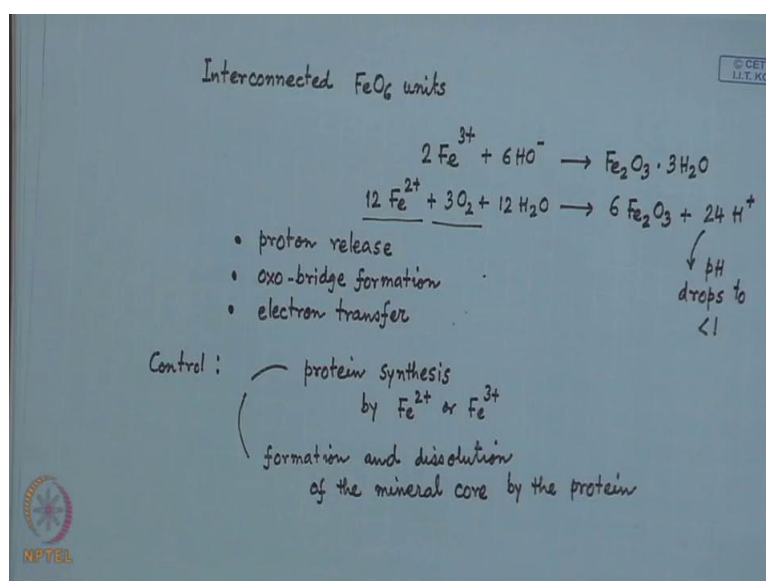 Interconnected FeO₆ units
© CET
I.I.T. KG
2 Fe³⁺ + 6 HO⁻ → Fe₂O₃ · 3H₂O
12 Fe²⁺ + 3O₂ + 12 H₂O → 6 Fe₂O₃ + 24 H⁺
• proton release
• oxo-bridge formation
• electron transfer
pH
drops to
<1
Control :
protein synthesis
by Fe²⁺ or Fe³⁺
formation and dissolution
of the mineral core by the protein
NPTEL